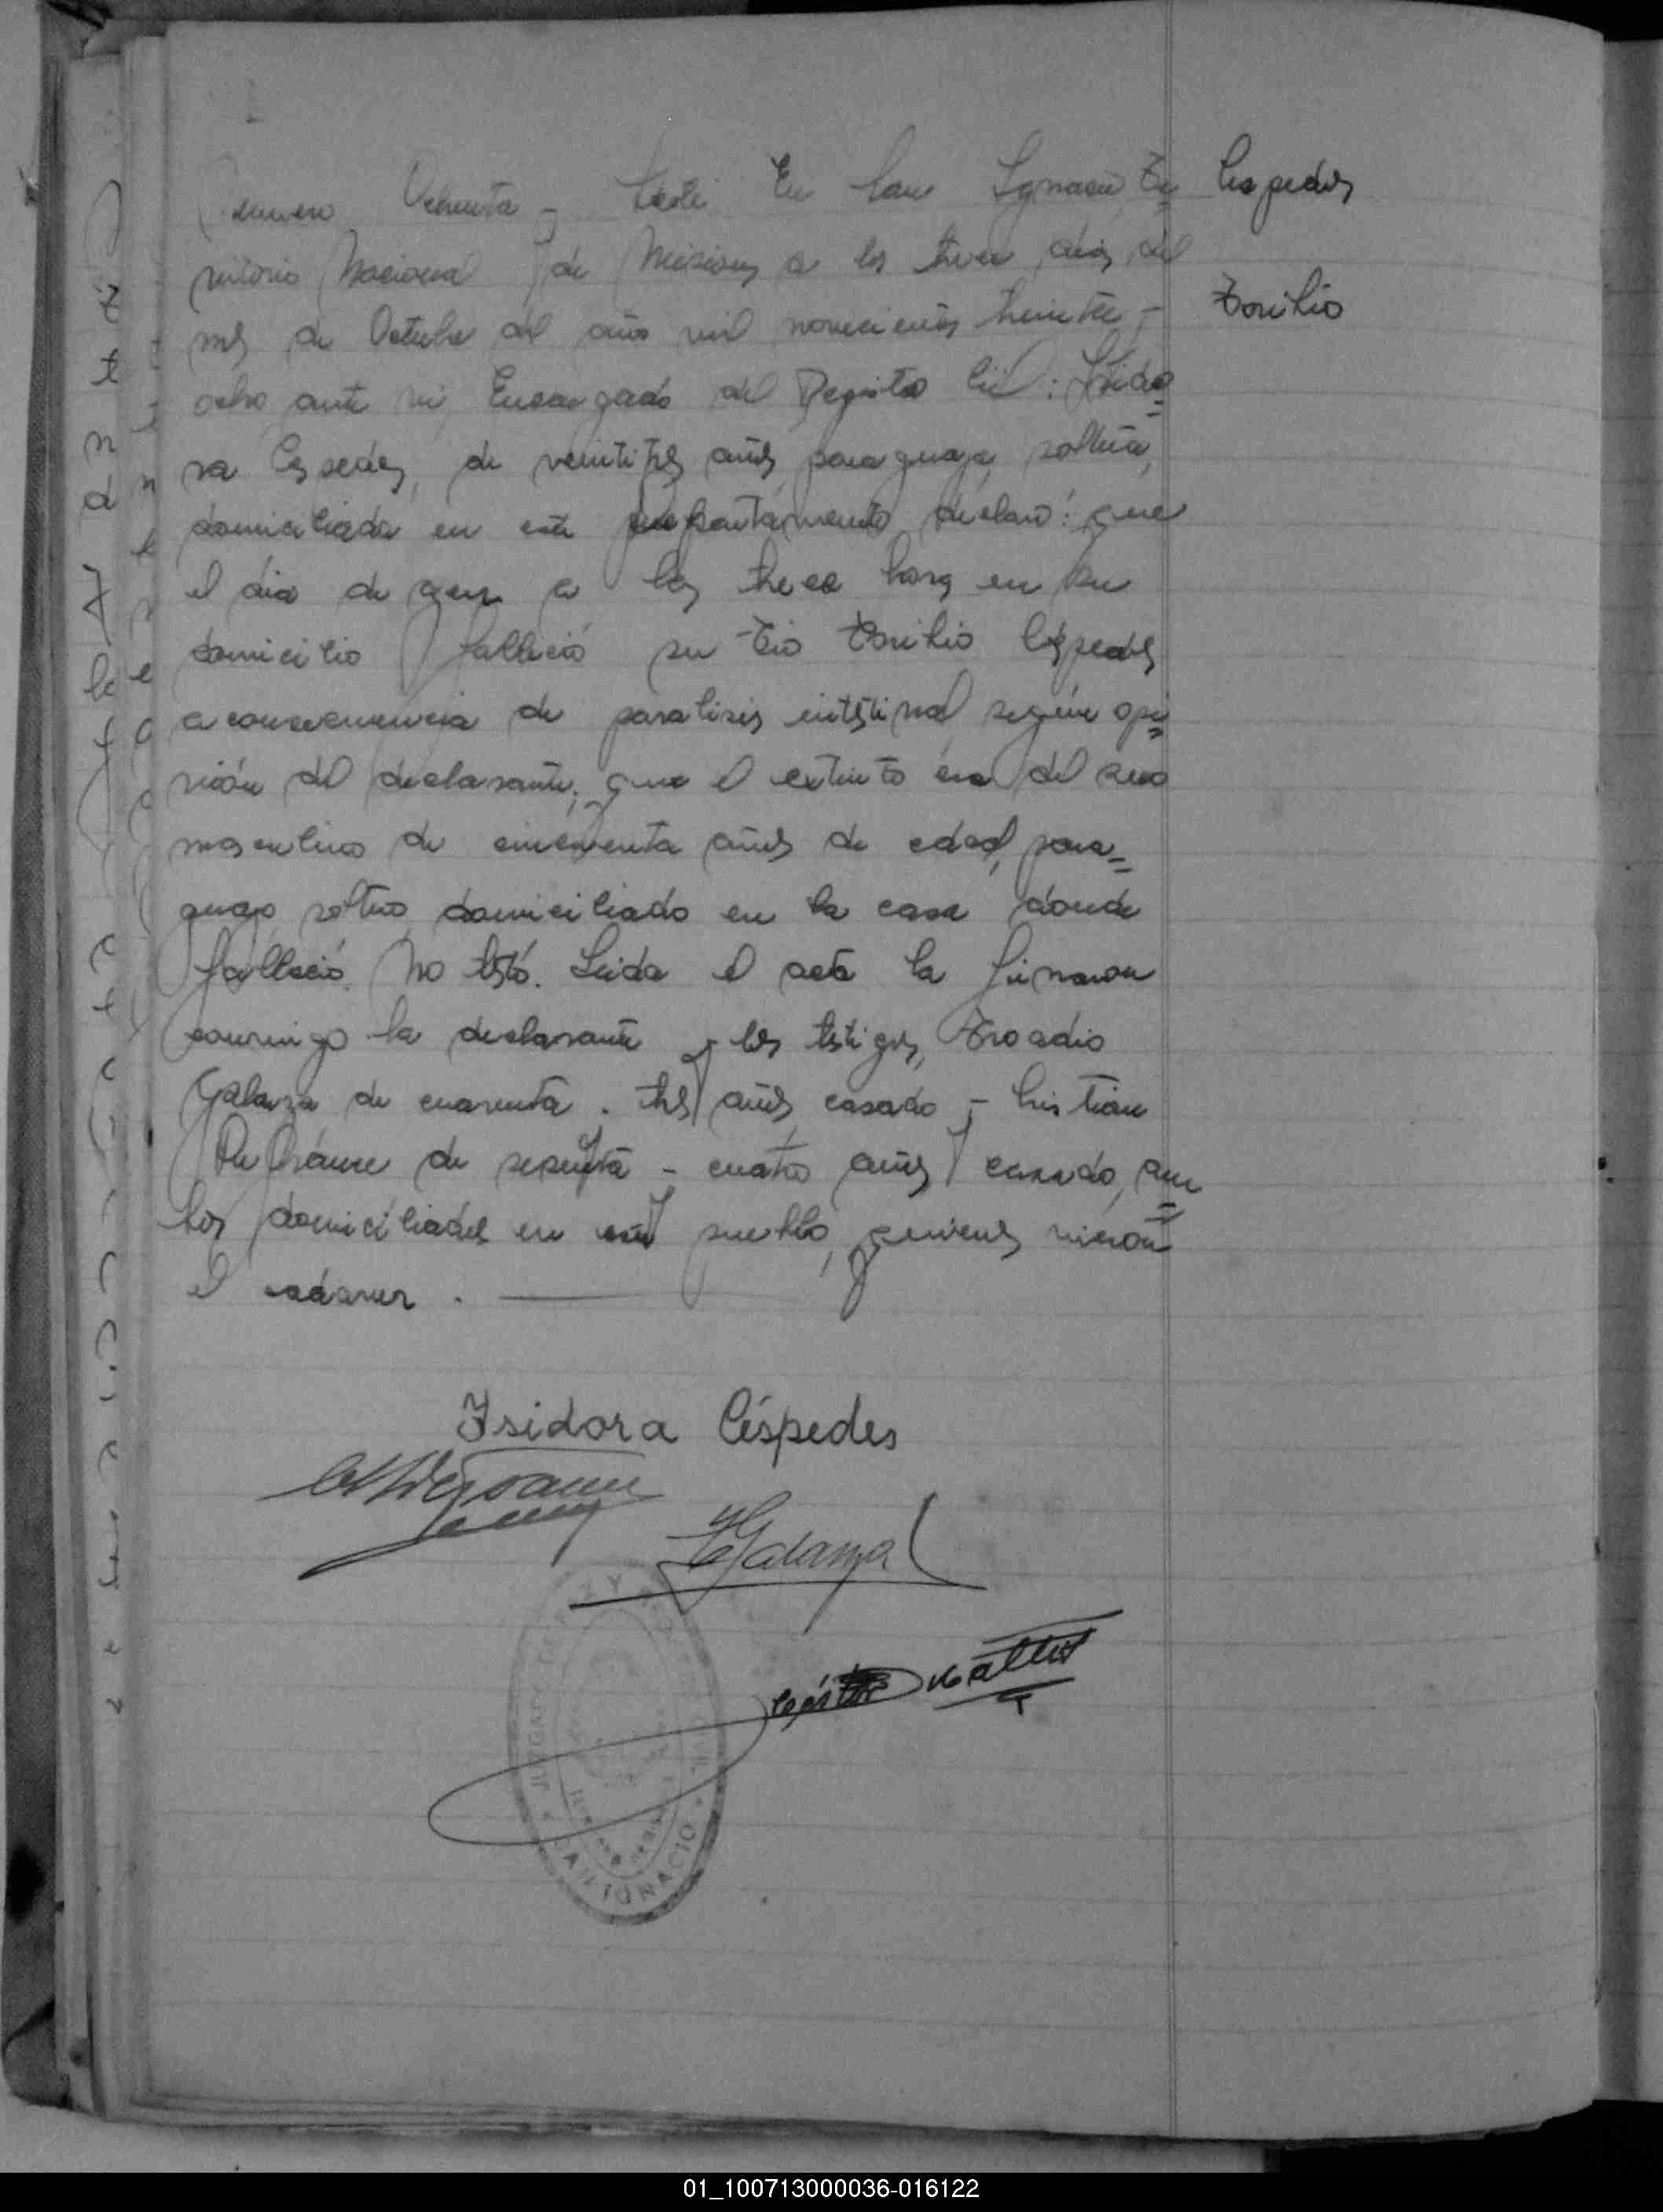 Numero Ochenta - siete En San Ignacio, Te=
rritorio Nacional de Misiones a los trece dias del
mes de Octubre del año mil novecientos treinta -
ocho ante mi Encargado del Registro Civil: Isido=
ra Cespedes, de veintitres años, paraguaya, soltera,
domiciliada en este departamento, declaró: que
el día de ayer a las trece horas en su
domicilio falleció su tio Toribio Céspedes
a consecuencia de paralisis intestinal según opi=
nión del declarante; que el extinto era del sexo
masculino de cincuenta años de edad, para=
guayo, soltero, domiciliado en la casa donde
falleció. No testó. Leida el acta la firmaron
conmigo la declarante y los testigos,
Galarza de cuarenta - tres años, casado - Cristian
de sesenta - cuatro años, casado, am=
bos domiciliados en este pueblo, quienes vieron
el cadaver. -
Cespedes
Toribio
Isidora Céspedes
Galarza
JUZGADO DE PAZ
SAN IGNACIO
01_100713000036-016122